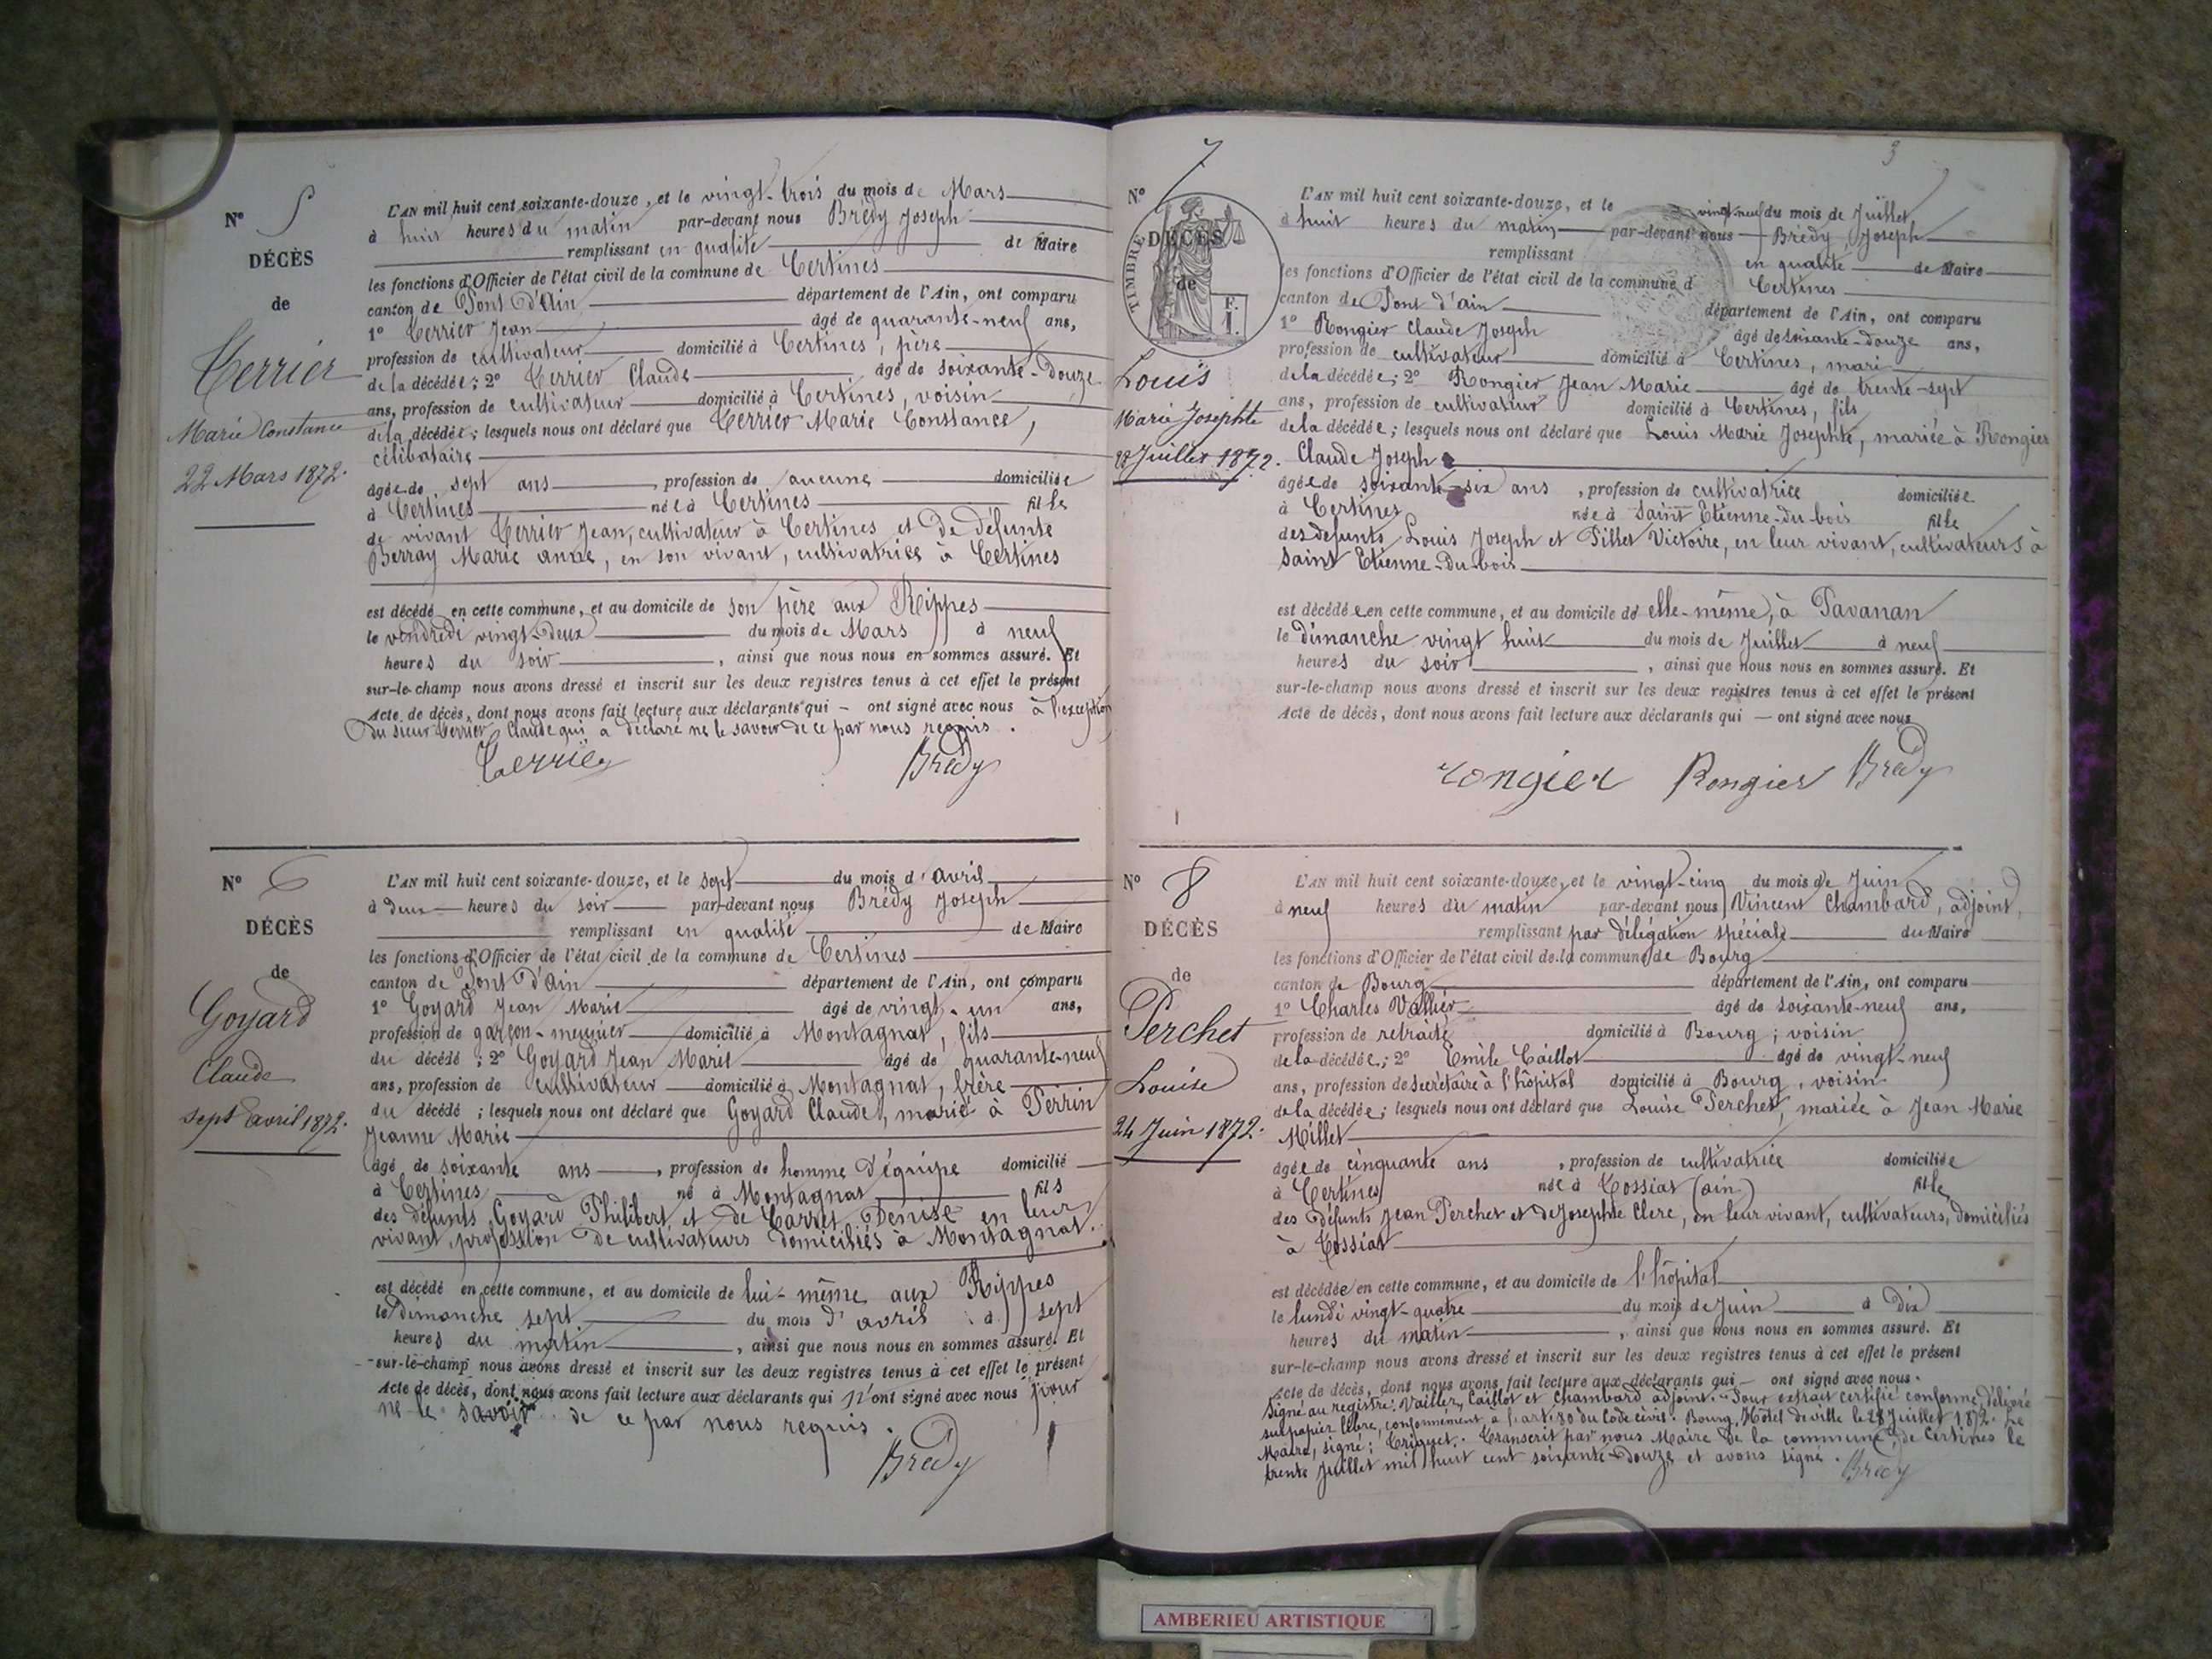 N° 5
DÉCÈS
de
Terrier
Marie Constance
22 Mars 1872.
L'AN mil huit cent soixante-douze, et le vingt-trois du mois de Mars
à huit heures du matin par-devant nous Brédy Joseph
remplissant en qualité de Maire
les fonctions d'Officier de l'état civil de la commune de Certines
canton de Pont d'Ain département de l'Ain, ont comparu
1° Terrier Jean âgé de quarante-neuf ans,
profession de cultivateur domicilié à Certines, père
de la décédée; 2° Terrier Claude âgé de soixante-douze
ans, profession de cultivateur domicilié à Certines, voisin
de la décédée; lesquels nous ont déclaré que Terrier Marie Constance,
célibataire
âgée de sept ans, profession de aucune domiciliée
à Certines née à Certines fille
de vivant Terrier Jean, cultivateur à Certines et de défunte
Berray Marie anne, en son vivant, cultivatrice à Certines
est décédé en cette commune, et au domicile de son père aux Rippes
le vendredi vingt-deux du mois de Mars à neuf
heures du soir, ainsi que nous nous en sommes assuré. Et
sur-le-champ nous avons dressé et inscrit sur les deux registres tenus à cet effet le présent
Acte de décès, dont nous avons fait lecture aux déclarants qui – ont signé avec nous à l'exception
du sieur Terrier Claude qui a déclaré ne le savoir de ce par nous requis.
Terrier Brédy
N° 6
DÉCÈS
de
Goyard
Claude
sept avril 1872.
L'AN mil huit cent soixante-douze, et le sept du mois d'avril
à deux heures du soir par-devant nous Brédy Joseph
remplissant en qualité de Maire
les fonctions d'Officier de l'état civil de la commune de Certines
canton de Pont d'Ain département de l'Ain, ont comparu
1° Goyard Jean Marie âgé de vingt-un ans,
profession de garçon-meunier domicilié à Montagnat, fils
du décédé; 2° Goyard Jean Marie âgé de quarante-neuf
ans, profession de cultivateur domicilié à Montagnat, frère
du décédé; lesquels nous ont déclaré que Goyard Claude, marié à Perrin
Jeanne Marie
âgé de soixante ans, profession de homme d'équipe domicilié
à Certines né à Montagnat fils
des défunts Goyard Philibert et de Carret Denise en leur
vivant, profession de cultivateurs domiciliés à Montagnat.
est décédé en cette commune, et au domicile de lui-même aux Rippes
le dimanche sept du mois d'avril à sept
heures du matin, ainsi que nous nous en sommes assuré. Et
sur-le-champ nous avons dressé et inscrit sur les deux registres tenus à cet effet le présent
Acte de décès, dont nous avons fait lecture aux déclarants qui n'ont signé avec nous pour
ne le savoir de ce par nous requis.
Brédy
3
N° 7
TIMBRE
DÉCÈS
de
F.
1.
Louis
Marie Josephte
28 Juillet 1872.
L'AN mil huit cent soixante-douze, et le vingt-neuf du mois de Juillet
à huit heures du matin par-devant nous Brédy Joseph
remplissant en qualité de Maire
les fonctions d'Officier de l'état civil de la commune d Certines
canton de Pont d'ain département de l'Ain, ont comparu
1° Rongier Claude Joseph âgé de soixante-douze ans,
profession de cultivateur domicilié à Certines, mari
de la décédée; 2° Rongier Jean Marie âgé de trente-sept
ans, profession de cultivateur domicilié à Certines, fils
de la décédée; lesquels nous ont déclaré que Louis Marie Josephte, mariée à Rongier
Claude Joseph
âgée de soixante-six ans, profession de cultivatrice domiciliée
à Certines née à Saint Etienne-du-bois fille
des défunts Louis Joseph et Pillet Victoire, en leur vivant, cultivateurs à
Saint Etienne-du-bois
est décédée en cette commune, et au domicile de elle-même, à Pavanan
le dimanche vingt huit du mois de Juillet à neuf
heures du soir, ainsi que nous nous en sommes assuré. Et
sur-le-champ nous avons dressé et inscrit sur les deux registres tenus à cet effet le présent
Acte de décès, dont nous avons fait lecture aux déclarants qui – ont signé avec nous
rongier Rongier Brédy
N° 8
DÉCÈS
de
Perchet
Louise
24 Juin 1872.
L'AN mil huit cent soixante-douze, et le vingt-cinq du mois de Juin
à neuf heures du matin par-devant nous Vincent Chambard, adjoint,
remplissant par délégation spéciale du Maire
les fonctions d'Officier de l'état civil de la commune de Bourg
canton de Bourg département de l'Ain, ont comparu
1° Charles Vallier âgé de soixante-neuf ans,
profession de retraité domicilié à Bourg; voisin
de la décédée; 2° Emile Caillot âgé de vingt-neuf
ans, profession de secrétaire à l'hôpital domicilié à Bourg, voisin
de la décédée; lesquels nous ont déclaré que Louise Perchet, mariée à Jean Marie
Millet
âgée de cinquante ans, profession de cultivatrice domiciliée
à Certines née à Tossiat (ain) fille
des défunts Jean Perchet et de Josephte Clerc, en leur vivant, cultivateurs, domiciliés
à Tossiat
est décédée en cette commune, et au domicile de l'hôpital
le lundi vingt-quatre du mois de Juin à dix
heures du matin, ainsi que nous nous en sommes assuré. Et
sur-le-champ nous avons dressé et inscrit sur les deux registres tenus à cet effet le présent
Acte de décès, dont nous avons fait lecture aux déclarants qui – ont signé avec nous.
Signé au registre: Vallier, Caillot et Chambard adjoint. Pour extrait certifié conforme, délivré
sur papier libre, conformément à l'art. 80 du Code civil. Bourg, Hôtel de ville le 28 Juillet 1872. Le
Maire, signé: . Transcrit par nous Maire de la commune de Certines le
trente Juillet mil huit cent soixante-douze et avons signé. Brédy
AMBERIEU ARTISTIQUE